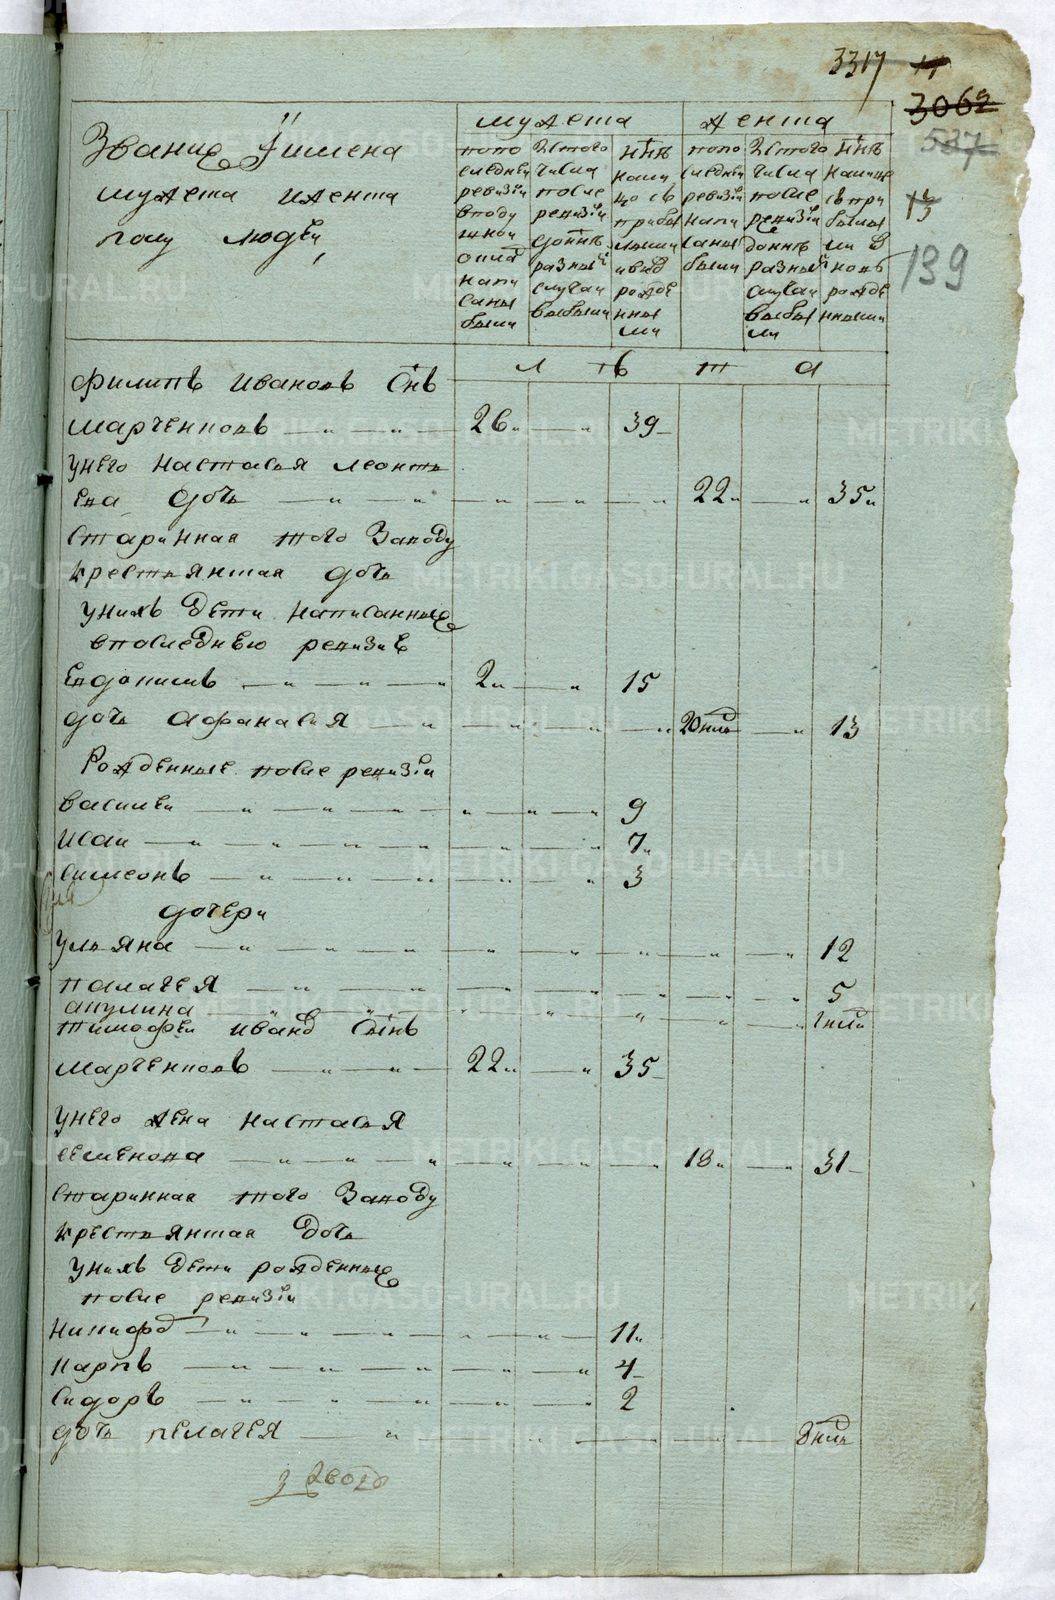 3317 14
3062
537
13
139
Звание Ї имена
мужеска иженска
полу людеи,
мужеска
женска
попо
следнеи
ревизїи
вподу
шнои
окла
напи
саны
были
Изтого
числа
после
ревизїи
донне
разными
случаи
выбыли
Нне
нали
цо съ
прибы
лыми
ивно
рожде
нны
ми
попо
следнеи
ревизїи
напи
саны
были
Изтого
числа
после
ревизїи
донне
разными
случаи
выбы
ли
Нне
налице
съ при
былы
ми и
новъ
рожде
нными
л ѣ т а
Филипъ Ивановъ Снъ
Марченковъ 26 39
унего Настасья леонть
ева дочь 22 35
Старинная того Заводу
крестьянская дочь
унихъ дети написанные
впоследнею ревизїе
Евдокимъ 2 15
дочь Афанасья 20 ндль 13
Рожденные после ревизїи
василеи 9
Исаи 7
Симеонъ 3
дочери
Ульяна 12
палагея 5
акулина
тимофеи Иванов Сынъ
Марченковъ 22 35
унего жена настасья
семенова 18 31
Старинная того Заводу
крестьянская дочь
унихъ дети рожденные
после ревизїи
Никифор 11
Карпъ 4
Сидоръ 2
дочь пелагея
METRIKI.GASO-URAL.RU